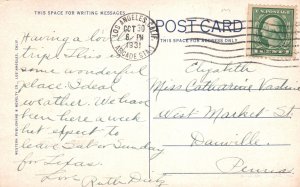 THIS SPACE FOR WRITING MESSAGES
POST CARD
THIS SPACE FOR ADDRESS ONLY
LOS ANGELES, CALIF.
OCT 30
6-PM
1931
ARCADE STA.
Having a lovely
trip. This is
some wonderful
place. Ideal
weather. We have
been here a week
but expect to
leave Sat or Sunday
for Texas.
Love Ruth
Elizabeth
Miss Catharine
West Market St.
Danville,
Penna
WESTERN PUBLISHING & NOVELTY CO., LOS ANGELES, CALIF.